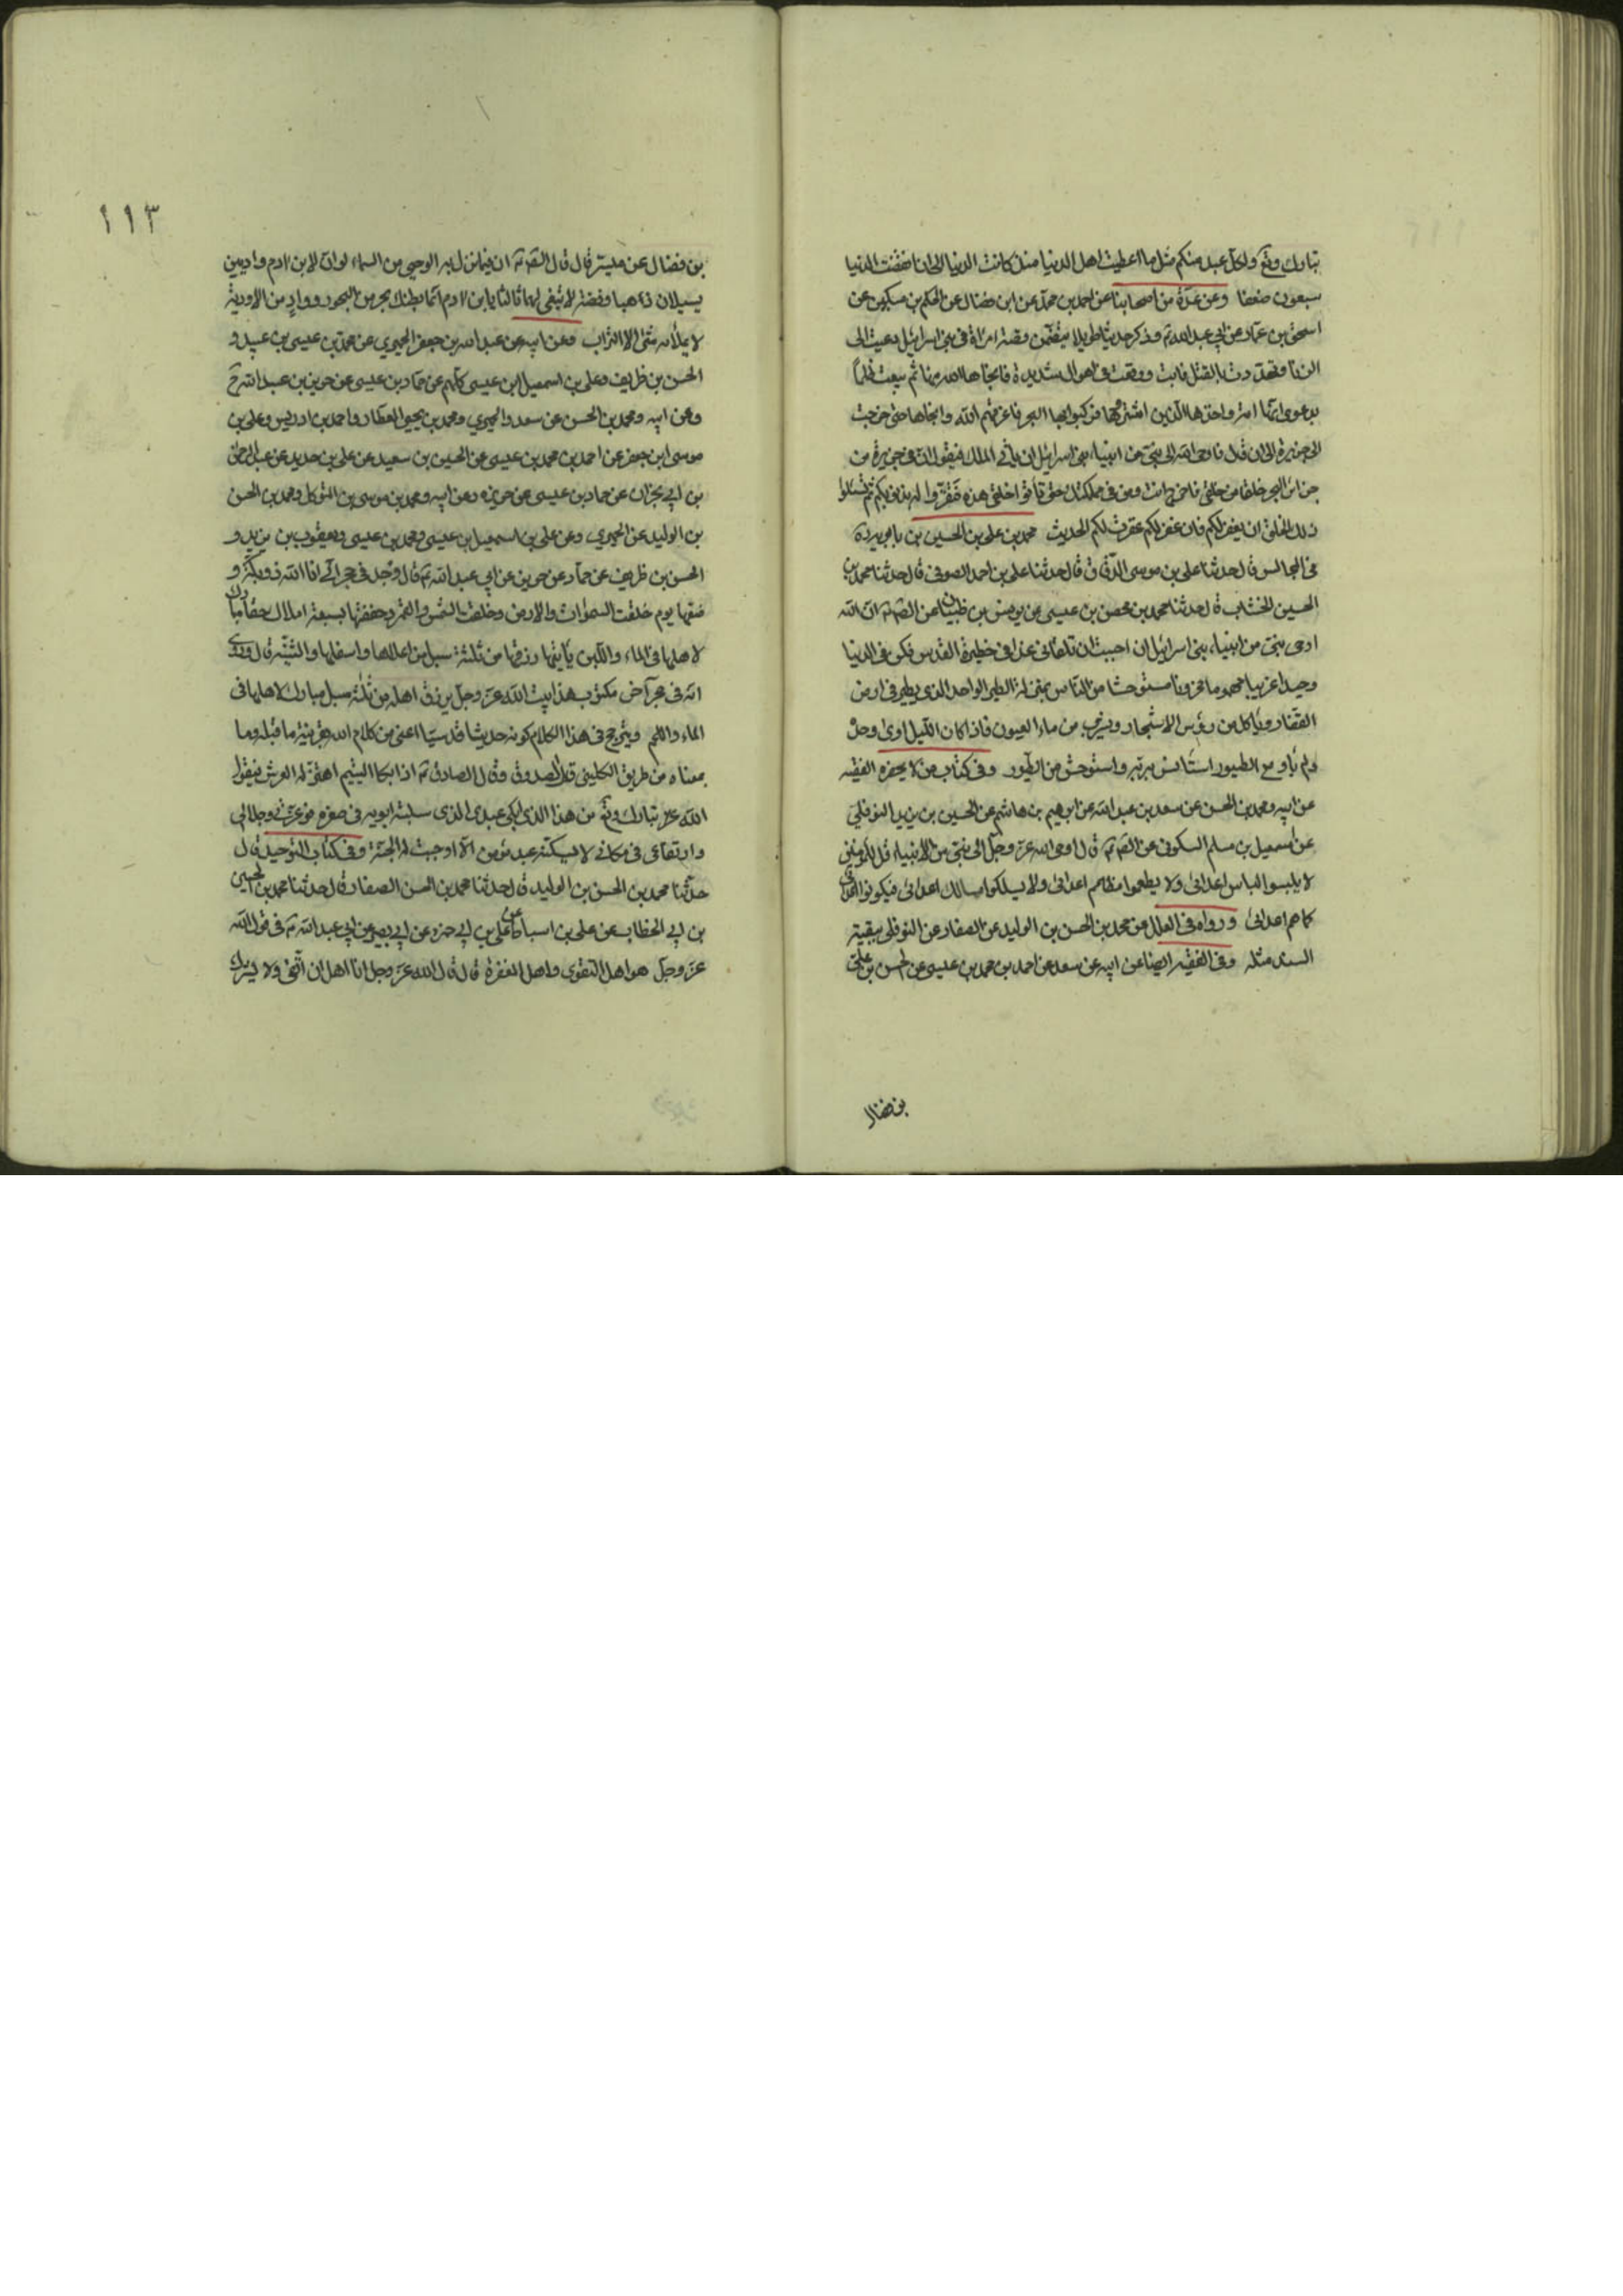 تبارك وتع ولكل عبد منكم مثل ما اعطيت اهل الدنيا منذ كانت الدنيا الى ان انقضت الدنيا
سبعون ضعفا وعن عدة من اصحابنا عن احمد بن محمد عن ابن فضال عن الحكم بن مسكين عن
اسحق بن عمار عن ابي عبد الله ع وذكر حديثا طويلا يتضمن قصة امراة في بني اسرائيل دعيت الى
الزنا وتهددت بالقتل فابت ووقعت في اهوال شديدة فانجاها الله منها ثم بيعت ظلماً
بدعوى انها امة واخذها الذين اشتروها فركبوا بها البحر فاغرقهم الله وانجاها حتى خرجت
الى جزيرة الى ان قال فاوحى الله الى نبي من انبياء بني اسرائيل ان ياتي الملك فيقول ان في جزيرة من
جزاير البحر خلقا من خلقي فاخرج انت ومن في مملكتك حتى تأتوا خلقي هذه فتقروا له بذنوبكم ثم تسئلوا
ذلك الخلق ان يغفر لكم فان غفر لكم غفرت لكم الحديث محمد بن علي بن الحسين بن بابويه
في المجالس قال حدثنا علي بن موسى الدقاق قال حدثنا علي بن احمد الصوفي قال حدثنا محمد بن
الحسين الخشاب قال حدثنا محمد بن محصن بن عيسى عن يونس بن ظبيان عن الص ع ان الله
اوحى نبي من انبياء بني اسرائيل ان احببت ان تلقاني غدا في حظيرة القدس فكن في الدنيا
وحيدا غريبا مهموما محزونا مستوحشا من الناس بمنزلة الطير الواحد الذي يطير في ارض
القفار وياكل من رؤس الاشجار ويشرب من ماء العيون فاذا كان الليل اوى وحده
ولم يأو مع الطيور استأنس بربه واستوحش من الطيور وفي كتاب من لا يحضره الفقيه
عن ابيه ومحمد بن الحسن عن سعد بن عبد الله عن ابرهيم بن هاشم عن الحسين بن يزيد النوفلي
عن اسمعيل بن مسلم السكوني عن الص ع قال اوحى الله عز وجل الى نبي من الانبياء قل للمؤمنين
لا يلبسوا لباس اعدائي ولا يطعموا مطاعم اعدائي ولا يسلكوا مسالك اعدائي فيكونوا اعدائي
كما هم اعدائي ورواه في العلل عن محمد بن الحسن بن الوليد عن الصفار عن النوفلي ببقية
السند مثله وفي الفقيه ايضا عن ابيه عن سعد عن احمد بن محمد بن عيسى عن الحسن بن علي
بن فضال
١١٣
بن فضال عن ميسر قال قال الص ع ان فيما نزل به الوحي من السماء لو ان لابن ادم واديين
يسيلان ذهبا وفضة لابتغى لهما ثالثا يا بن ادم انما بطنك بحر من البحور وواد من الاودية
لا يملأه شئ الا التراب وعن ابيه عن عبد الله بن جعفر الحميري عن محمد بن عيسى بن عبيد و
الحسن بن ظريف وعلي بن اسمعيل بن عيسى كلهم عن حماد بن عيسى عن حريز بن عبد الله ح
وعن ابيه ومحمد بن الحسن عن سعد والحميري ومحمد بن يحيى العطار واحمد بن ادريس وعلي بن
موسى ابن جعفر عن احمد بن محمد بن عيسى عن الحسين بن سعيد عن علي بن حديد عن عبد الرحمن
بن ابي نجران عن حماد بن عيسى عن حريز ح وعن ابيه ومحمد بن موسى بن المتوكل ومحمد بن الحسن
بن الوليد عن الحميري وعن علي بن اسمعيل بن عيسى ومحمد بن عيسى ويعقوب بن يزيد و
الحسن بن ظريف عن حماد عن حريز عن ابي عبد الله ع قال وجد في حجر اني انا الله ذو بكة و
ضعتها يوم خلقت السموات والارض وخلقت الشمس والقمر وحففتها بسبعة املاك حفا مبارك
لاهلها في الماء واللبن يأتيها رزقها من ثلثة سبل من اعلاها واسفلها والثنية قال وروي
انه في حجر آخر مكتوب هذا بيت الله عز وجل يرزق اهله من ثلثة سبل مبارك لاهلها في
الماء واللحم ويترجح في هذا الكلام كونه حديثا قدسيا اعني من كلام الله بقرينة ما قبله وما
بمعناه من طريق الكليني قال الصدوق وقال الصادق ع اذا بكا اليتيم اهتز له العرش فيقول
الله تبارك وتع من هذا الذي ابكى عبدي الذي سلبته ابويه في صغره فوعزتي وجلالي
وارتفاعي في مكاني لا يسكته عبد مؤمن الا اوجبت له الجنة وفي كتاب التوحيد قال
حدثنا محمد بن الحسن بن الوليد قال حدثنا محمد بن الحسن الصفار قال حدثنا محمد بن الحسين
بن ابي الخطاب عن علي بن اسباط عن علي بن ابي حمزة عن ابي بصير عن ابي عبد الله ع في قول الله
عز وجل هو اهل التقوى واهل المغفرة قال قال الله عز وجل انا اهل ان اتقى ولا يشرك